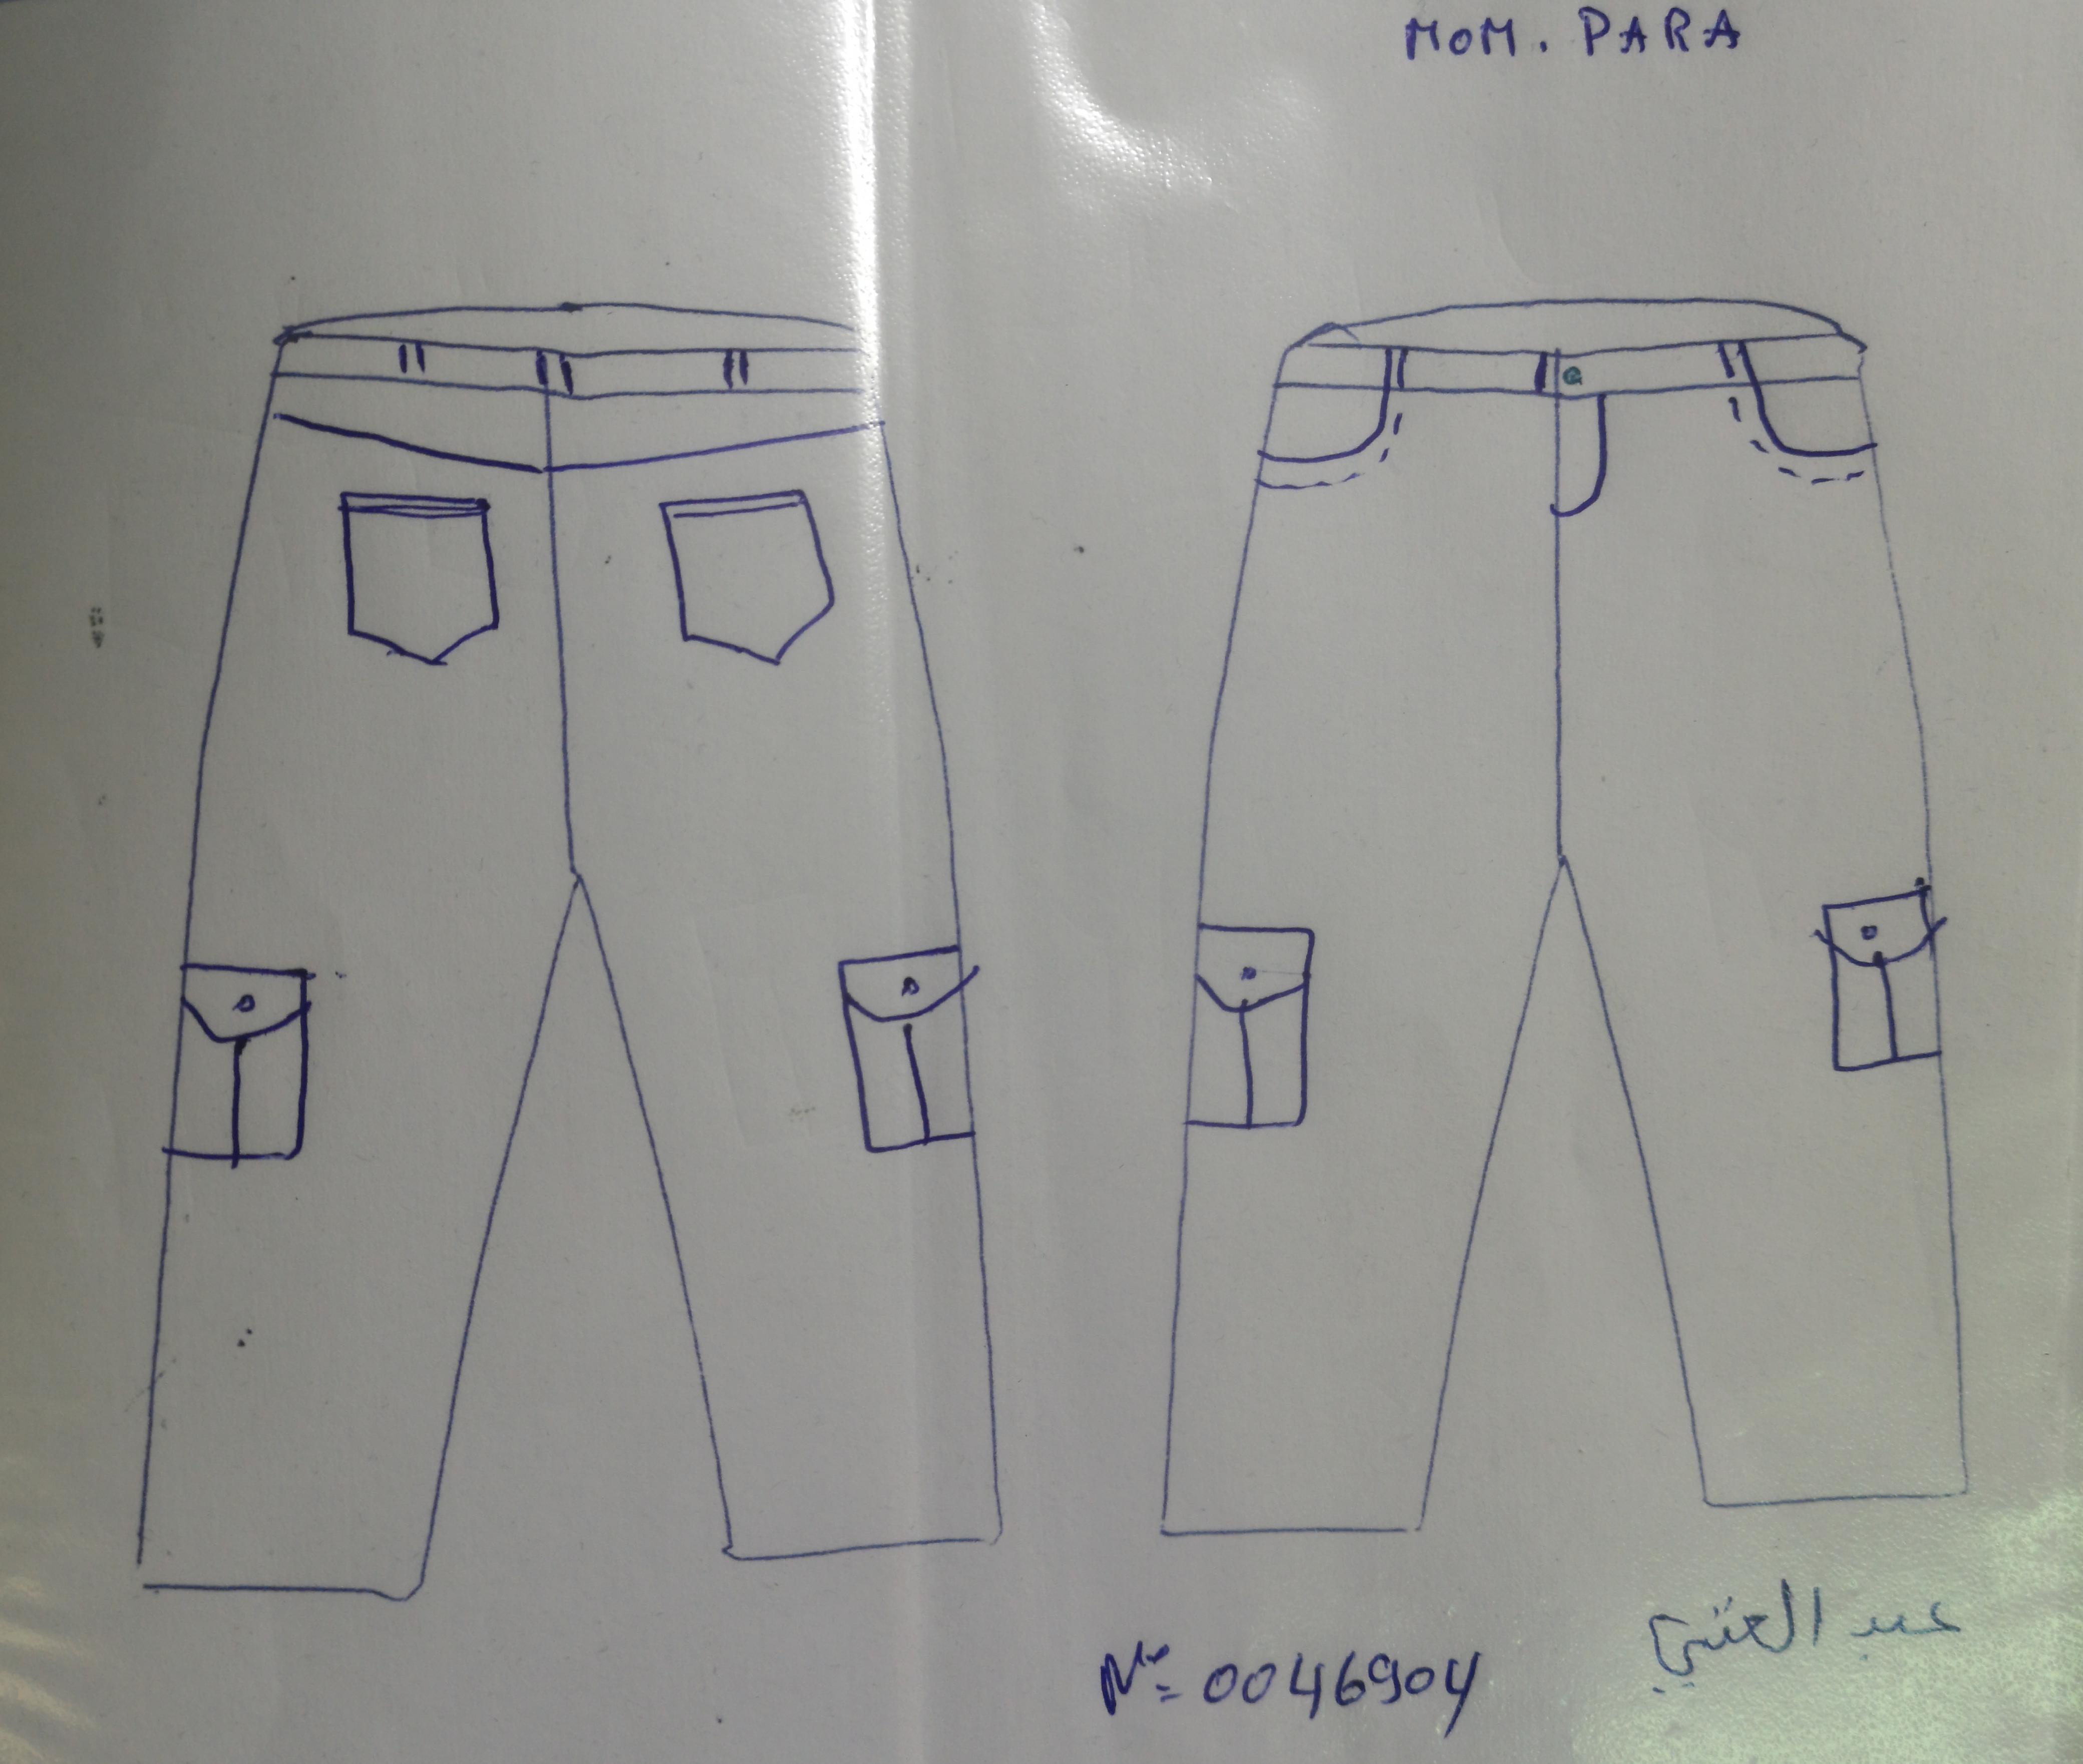 MOM. PARA
N°= 0046904
عبد الغني